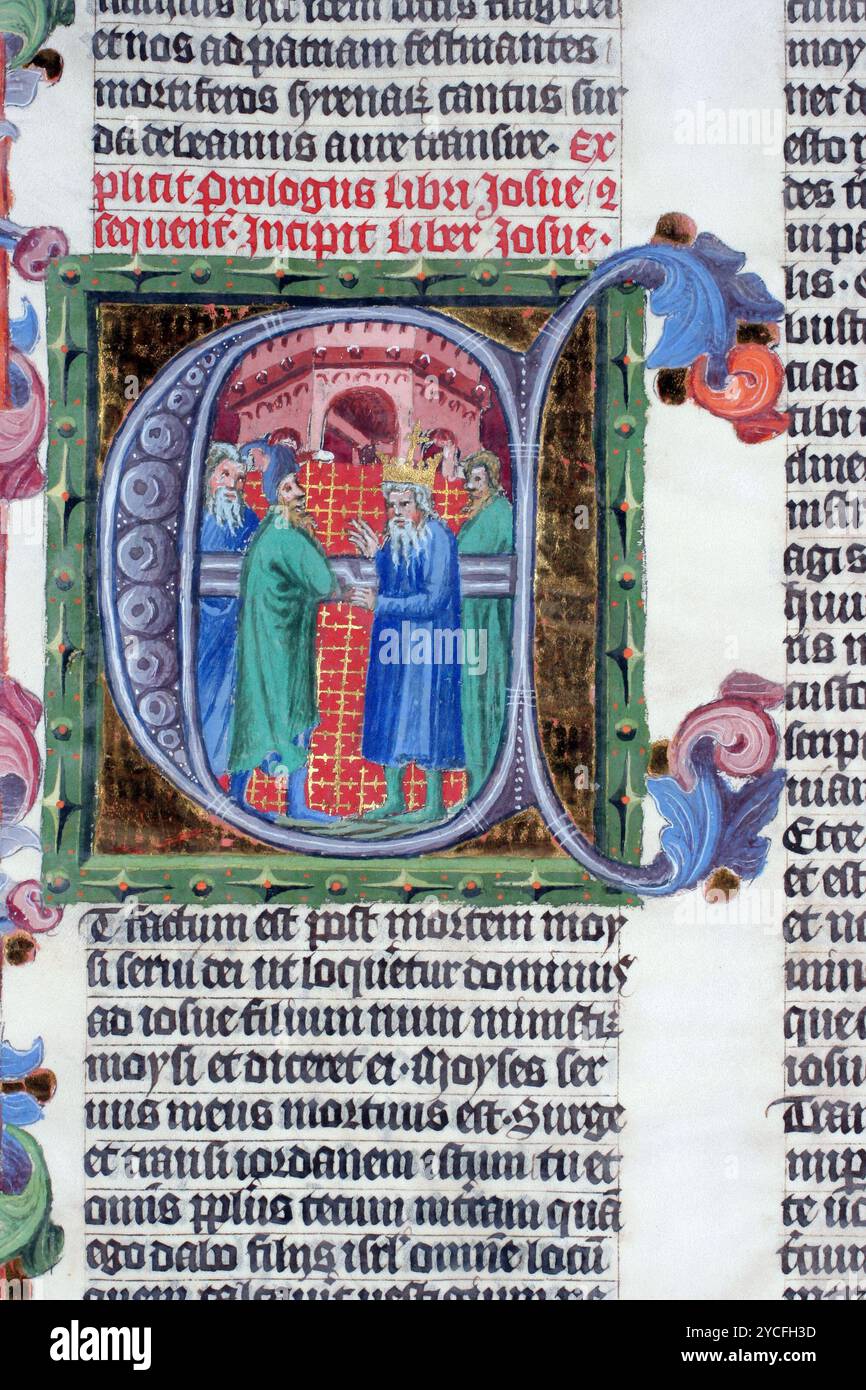 et nos ad patriam festinantes
mortiferos syrenaꝝ cantus sur
da debeamus aure transire. Ex
plicit prologus libri Josue
sequent. Incipit Liber Josue.
T factum est post mortem moy
si serui dei ut loqueretur dominus
ad iosue filium nun ministꝝ
moysi et diceret ei. Moyses ser
uus meus mortuus est. Surge
et transi iordanem istum tu et
omis pplus tecum in terram quā
ego dabo filijs isrl. omnē locū
quem calcauit uestigium pe
moy
nec d
esto
des
in pa
lis.
bust
cias
tibi
agis
huiu
scrip
Ecce
et est
et no
que
iosu
Tran
te
alamy
Image ID: 2YCFH3D
www.alamy.com